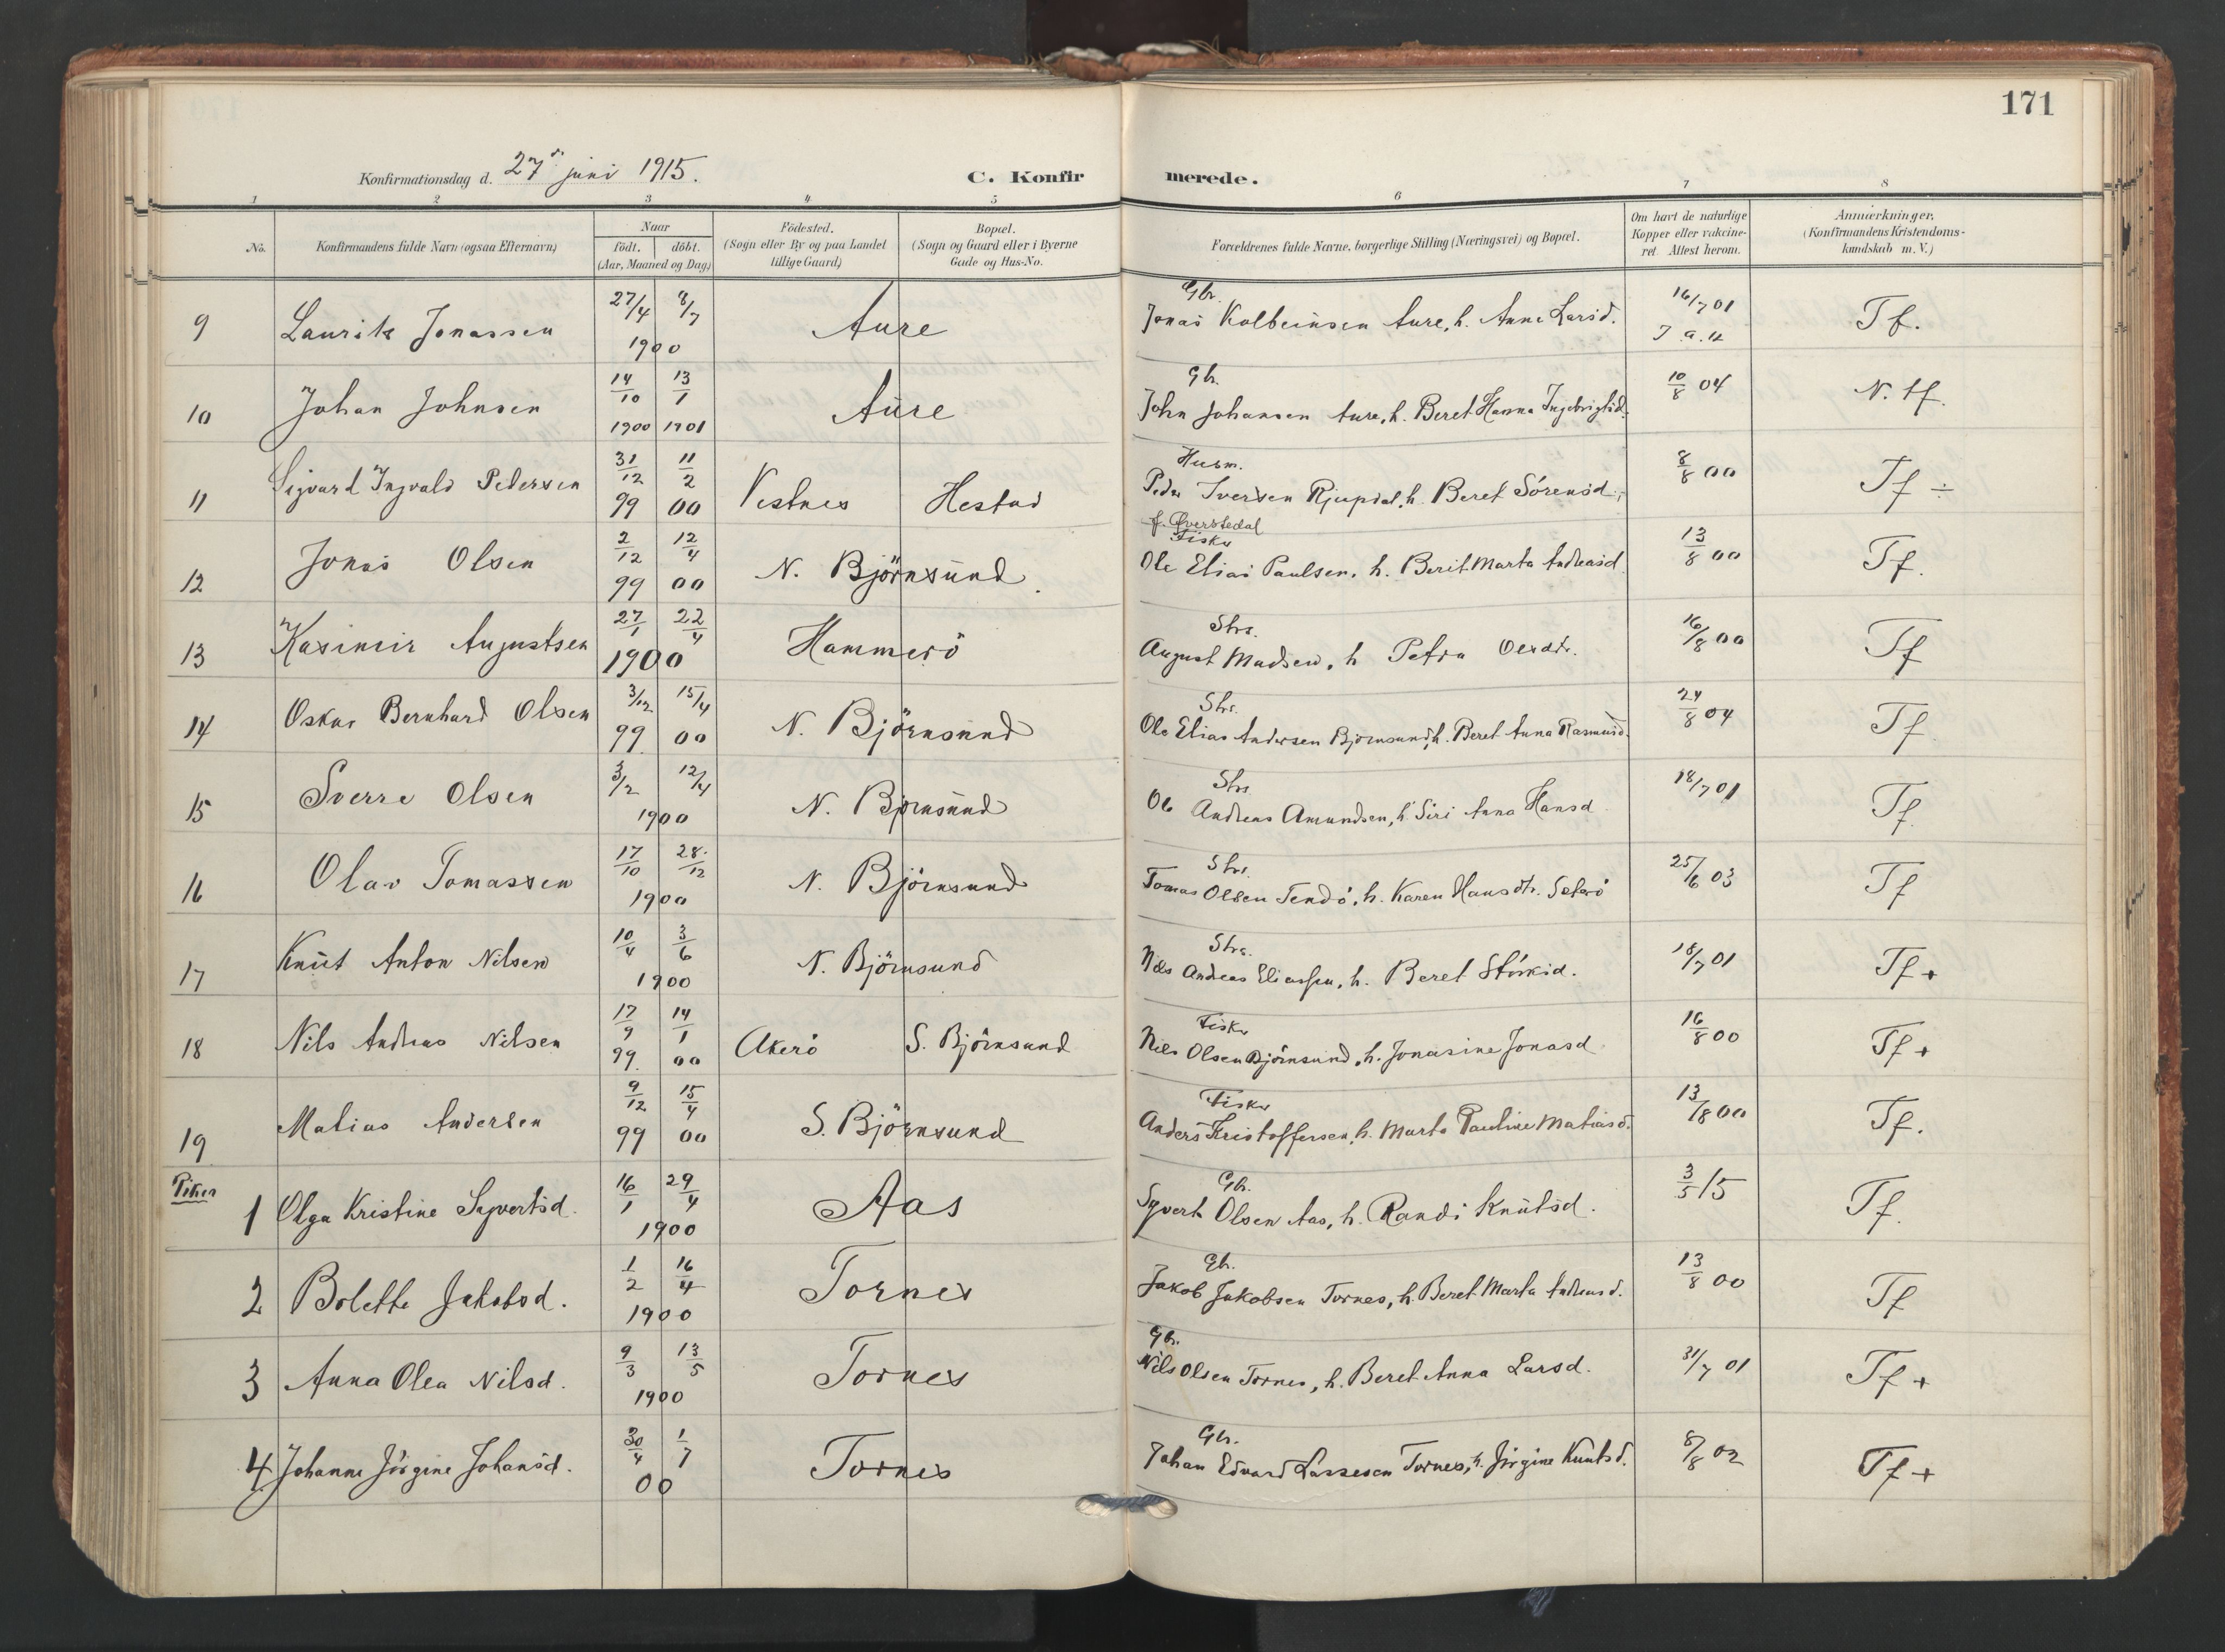 171
Konfirmationsdag d. 27de juni 1915.
C. Konfirmerede.
1 2 3 4 5 6 7 8
No. Konfirmandens fulde Navn (ogsaa Efternavn) Naar födt. döbt. (Aar, Maaned og Dag) Födested. (Sogn eller By og paa Landet tillige Gaard) Bopæl. (Sogn og Gaard eller i Byerne Gade og Hus-No. Forældrenes fulde Navne, borgerlige Stilling (Næringsvei) og Bopæl. Om havt de naturlige Kopper eller vakcineret. Attest herom. Anmærkninger. (Konfirmandens Kristendomskundskab m. V.)
9 Laurits Jonassen 27/4 8/7 1900 Aure Gbr. Jonas Kolbeinsen Aure, h. Anne Larsd. 16/7 01 Tf.
10 Johan Johnsen 14/10 1900 13/1 1901 Aure Gbr. John Johansen Aure, h. Beret Hanna Ingebrigtsd. 10/8 04 N. tf.
11 Sigvard Ingvald Pedersen 31/12 99 11/2 00 Vestnes Hestad Husm. Peder Iversen Rjupdal, h. Beret Sörensd. f. Øverstedal 8/8 00 Tf ÷
12 Jonas Olsen 2/12 99 12/4 00 N. Björnsund. Fisker Ole Elias Paulsen, h. Berit Marta Andreasd. 13/8 00 Tf.
13 Kasimir Augustsen 27/1 22/4 1900 Hammerö Strs. August Madsen, h Petra Olsdtr. 16/8 00 Tf
14 Oskar Bernhard Olsen 3/12 99 15/4 00 N. Björnsund Strs. Ole Elias Andersen Björnsund, h. Beret Anna Rasmusd. 24/8 04 Tf
15 Sverre Olsen 3/2 12/4 1900 N. Björnsund Strs Ole Andreas Amundsen, h. Siri Anna Hansd 18/7 01 Tf.
16 Olav Tomassen 17/10 28/12 1900 N. Björnsund Strs. Tomas Olsen Sendö, h. Karen Hansdtr. Seterö 25/6 03 Tf
17 Knut Anton Nilsen 10/4 3/6 1900 N. Björnsund Strs. Nils Andreas Eliassen, h. Beret 18/7 01 Tf +
18 Nils Andreas Nilsen 17/9 99. 14/1 00 Akerö S. Björnsund Fisker Nils Olsen Björnsund, h. Jonasine Jonasd 16/8 00 Tf +
19 Matias Andersen 9/12 99 15/4 00 S. Björnsund Fisker Anders Kristoffersen, h. Marta Pauline Matiasd. 13/8 00 Tf.
Piker
1 Olga Kristine Syvertsd. 16/1 29/4 1900 Aas Gbr. Syvert Olsen Aas, h. Randi Knutsd. 3/5 15 Tf.
2 Bolette Jakobsd. 1/2 16/4 1900 Tornes Gbr. Jakob Jakobsen Tornes, h. Beret Marta Andreasd. 13/8 00 Tf
3 Anna Olea Nilsd. 9/3 13/5 1900 Tornes Gbr. Nils Olsen Tornes, h. Beret Anna Larsd. 31/7 01 Tf +
4 Johanne Jörgine Johansd. 30/4 1/7 00 Tornes Gbr. Johan Edvard Lassesen Tornes, h. Jörgine Knutsd. 8/8 02 Tf +